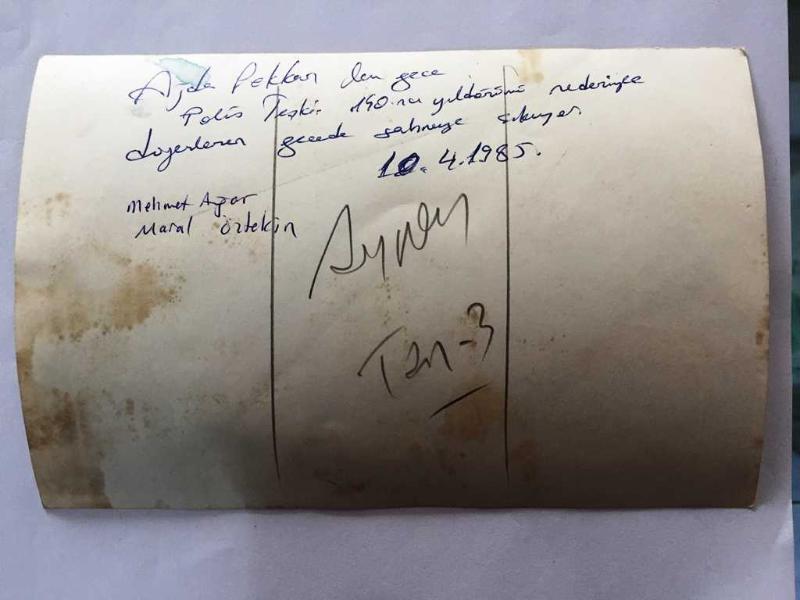 Ajda Pekkan dün gece
Polis Teşki. 140.ncı yıldönümü nedeniyle
düzenlenen gecede sahneye çıkıyor.
10.4.1985.
Mehmet Ağar
Maral Öztekin
Tan-3